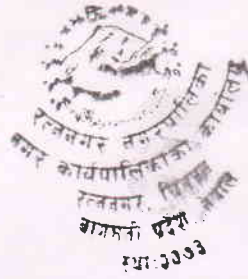 रत्ननगर नगरपालिका
नगर कार्यपालिकाको कार्यालय
रत्ननगर, चितवन
नेपाल
बागमती प्रदेश